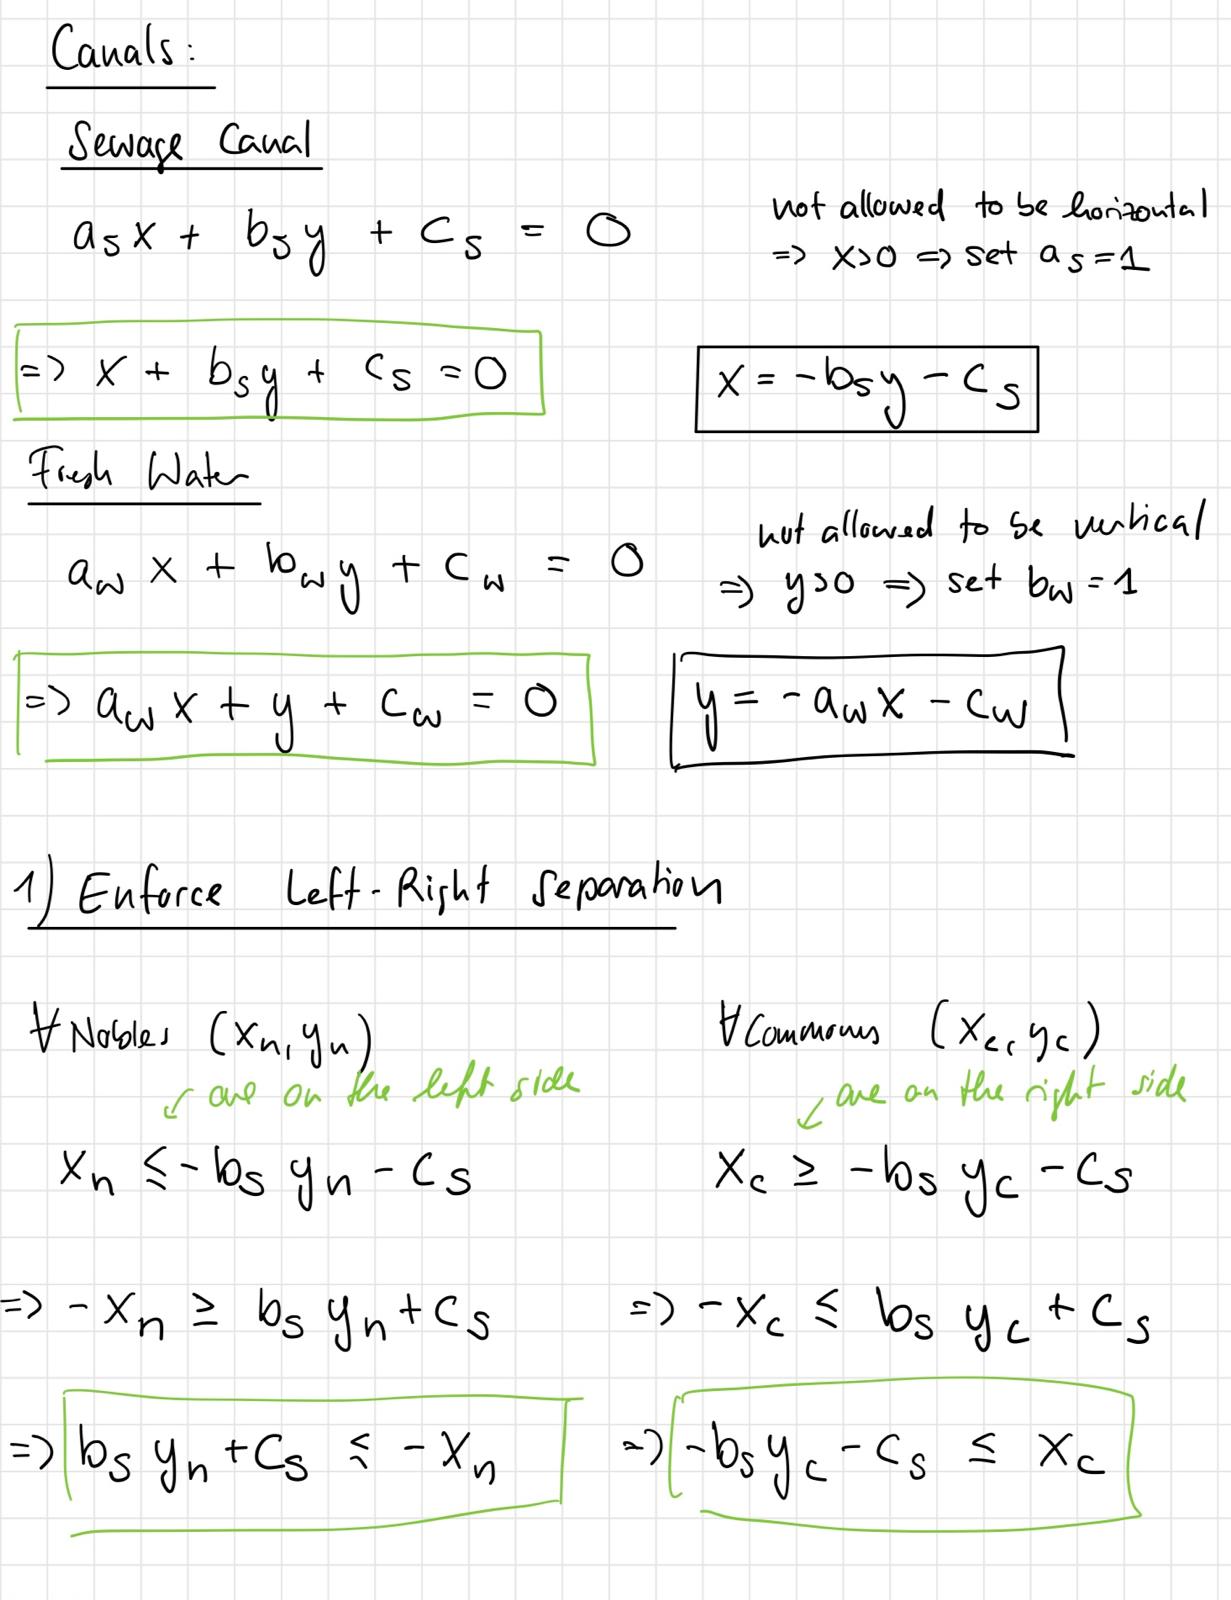 Canals:
Sewage Canal
a_s x + b_s y + c_s = 0
not allowed to be horizontal
=> x>0 => set a_s = 1
=> x + b_s y + c_s = 0
x = -b_s y - c_s
Fresh Water
a_w x + b_w y + c_w = 0
not allowed to be vertical
=> y>0 => set b_w = 1
=> a_w x + y + c_w = 0
y = -a_w x - c_w
1) Enforce Left-Right Separation
∀ Nobles (x_n, y_n)
↙ are on the left side
x_n ≤ -b_s y_n - c_s
=> -x_n ≥ b_s y_n + c_s
=> b_s y_n + c_s ≤ -x_n
∀ Commons (x_c, y_c)
↙ are on the right side
x_c ≥ -b_s y_c - c_s
=> -x_c ≤ b_s y_c + c_s
=> -b_s y_c - c_s ≤ x_c